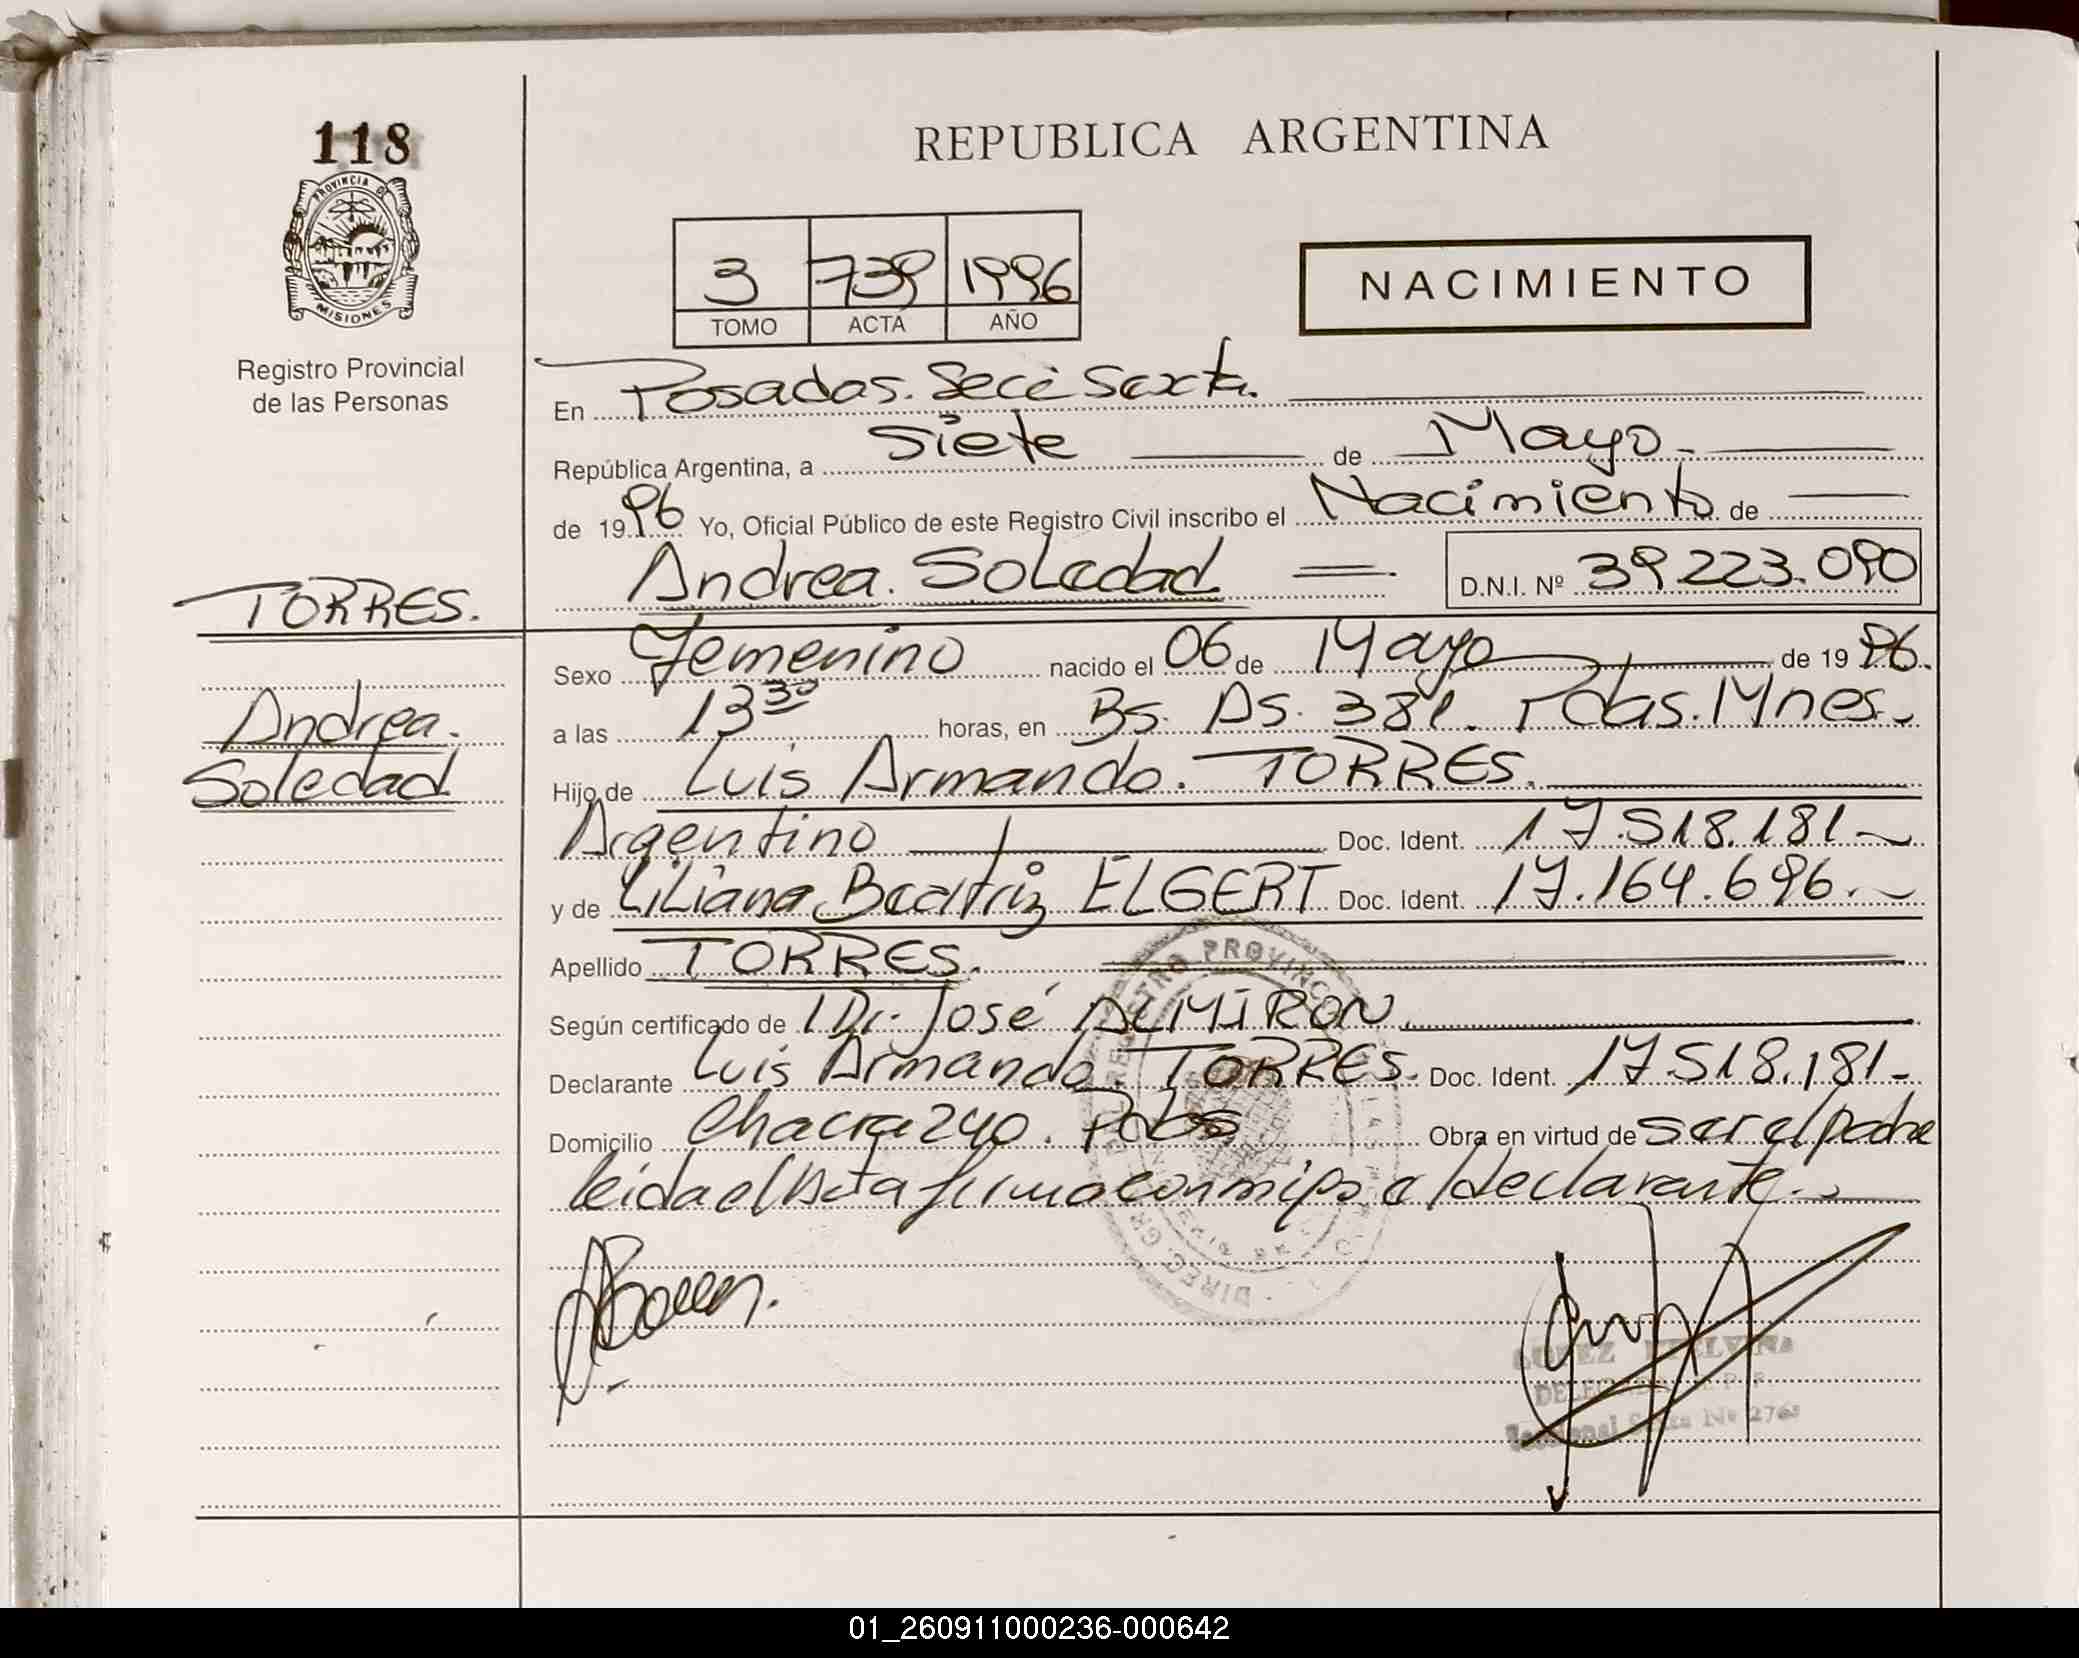 118
PROVINCIA DE
MISIONES
Registro Provincial
de las Personas
REPUBLICA ARGENTINA
3 739 1996
TOMO ACTA AÑO
NACIMIENTO
En Posadas. Secc Sexta.
República Argentina, a Siete de Mayo
de 1996 Yo, Oficial Público de este Registro Civil inscribo el Nacimiento de
Andrea. Soledad D.N.I. Nº 39.223.090
TORRES.
Andrea.
Soledad
Sexo Femenino nacido el 06 de Mayo de 1996.
a las 13 30 horas, en Bs. As. 381. Pdas. Mnes.
Hijo de Luis Armando. TORRES.
Argentino Doc. Ident. 17.518.181.
y de Liliana Beatriz ELGERT Doc. Ident. 17.164.696.
Apellido TORRES.
Según certificado de Dr. José ALMIRON.
Declarante Luis Armando. TORRES. Doc. Ident. 17.518.181-
Domicilio Chacra 240. Pdas Obra en virtud de ser el padre
leida el Acta firma conmigo el declarante.
REGISTRO PROVINC
DIREC. GR
LOPEZ
Seccional Sexta No 276
01_260911000236-000642